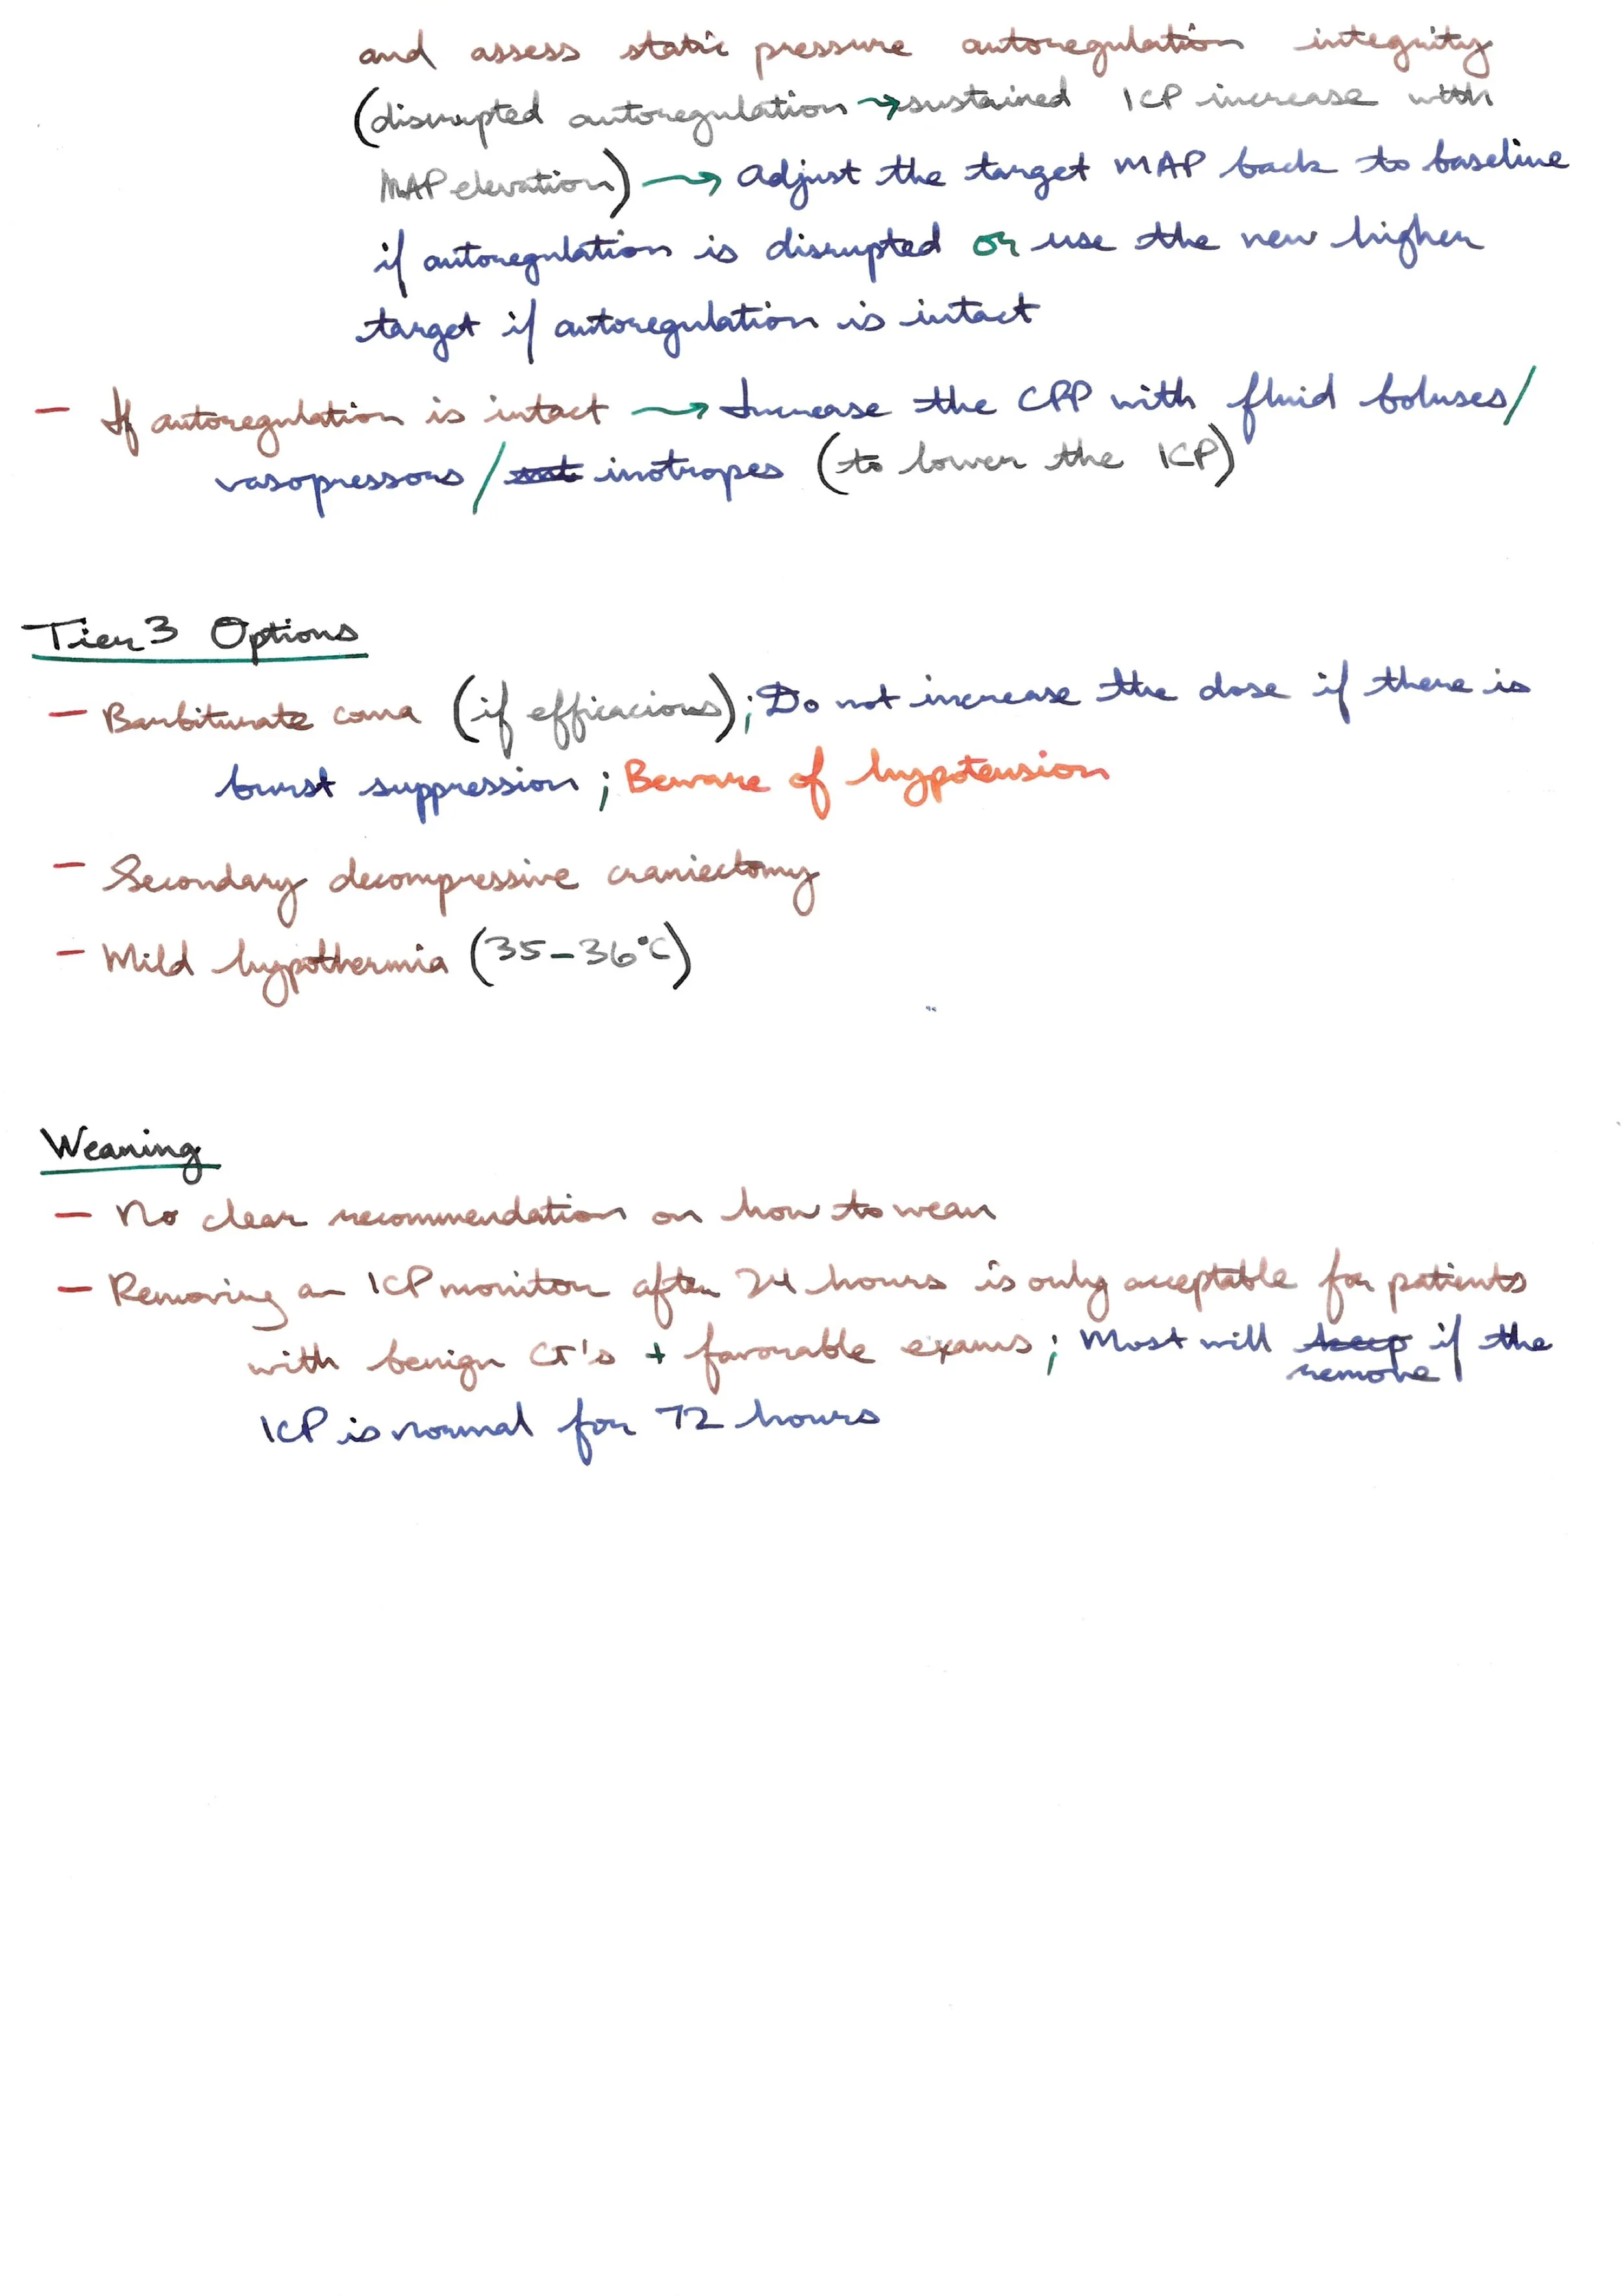 and assess static pressure autoregulation integrity
(disrupted autoregulation → sustained ICP increase with
MAP elevation) → Adjust the target MAP back to baseline
if autoregulation is disrupted or use the new higher
target if autoregulation is intact
- If autoregulation is intact → Increase the CPP with fluid boluses/
vasopressors / inotropes (to lower the ICP)
Tier 3 Options
- Barbiturate coma (if efficacious); Do not increase the dose if there is
burst suppression; Beware of hypotension
- Secondary decompressive craniectomy
- Mild hypothermia (35-36°C)
Weaning
- No clear recommendation on how to wean
- Removing an ICP monitor after 24 hours is only acceptable for patients
with benign CT's + favorable exams; Most will keep remove if the
ICP is normal for 72 hours